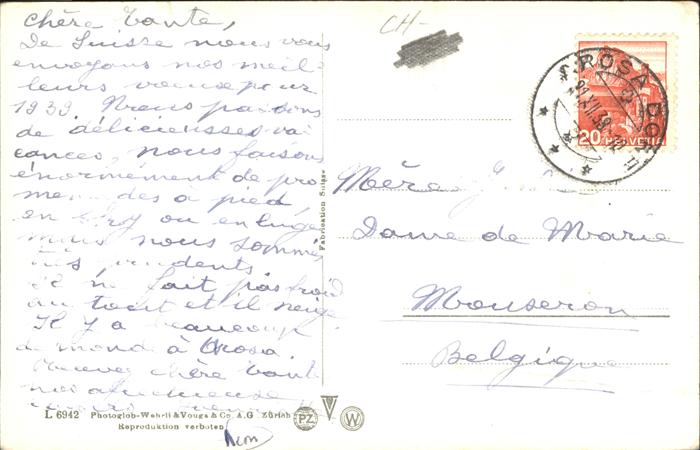 Chère Tante,
De Suisse nous vous
envoyons nos meil-
leurs voeux pour
1939. Nous passons
de délicieuses va
cances, nous faisons
énormément de pro
menades à pied,
en ou en luge
mais nous sommes
très prudents
il ne fait pas froid
du tout et il neige
Il y a beaucoup
de monde à Arosa.
Recevez chère Tante
nos affectueuse
CH-
AROSA DORF
20 HELVETIA
Mère
Dame de Marie
Mouscron
Belgique
Fabrication Suisse
L 6942 Photoglob-Wehrli & Vouga & Co. A.G. Zürich
Reproduktion verboten
PZ V W